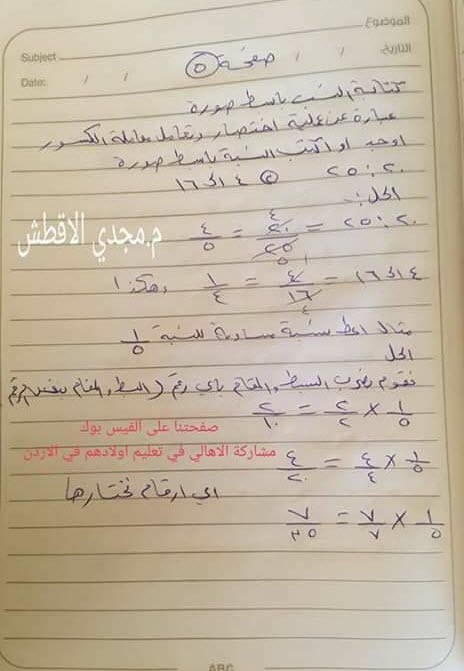 الموضوع:
Subject
التاريخ: / /
Date: / /
صفحة ٥
كتابة النسب بابسط صورة
عبارة عن عملية اختصار ونتعامل معاملة الكسور
اوجد او اكتب النسبة بابسط صورة
٢٠ : ٢٥ ٤ الى ١٦
الحل:
٢٠ : ٢٥ = ٢٠/٢٥ = ٤/٥
م.مجدي الاقطش
٤ الى ١٦ = ٤/١٦ = ١/٤ وهكذا
مثال اعط نسبة مساوية للنسبة ١/٥
الحل
نقوم بضرب البسط والمقام باي رقم (البسط والمقام بنفس الرقم
١/٥ × ٢/٢ = ٢/١٠
صفحتنا على الفيس بوك
مشاركة الاهالي في تعليم اولادهم في الاردن
١/٥ × ٤/٤ = ٤/٢٠
اي ارقام نختارها
١/٥ × ٧/٧ = ٧/٣٥
ABC